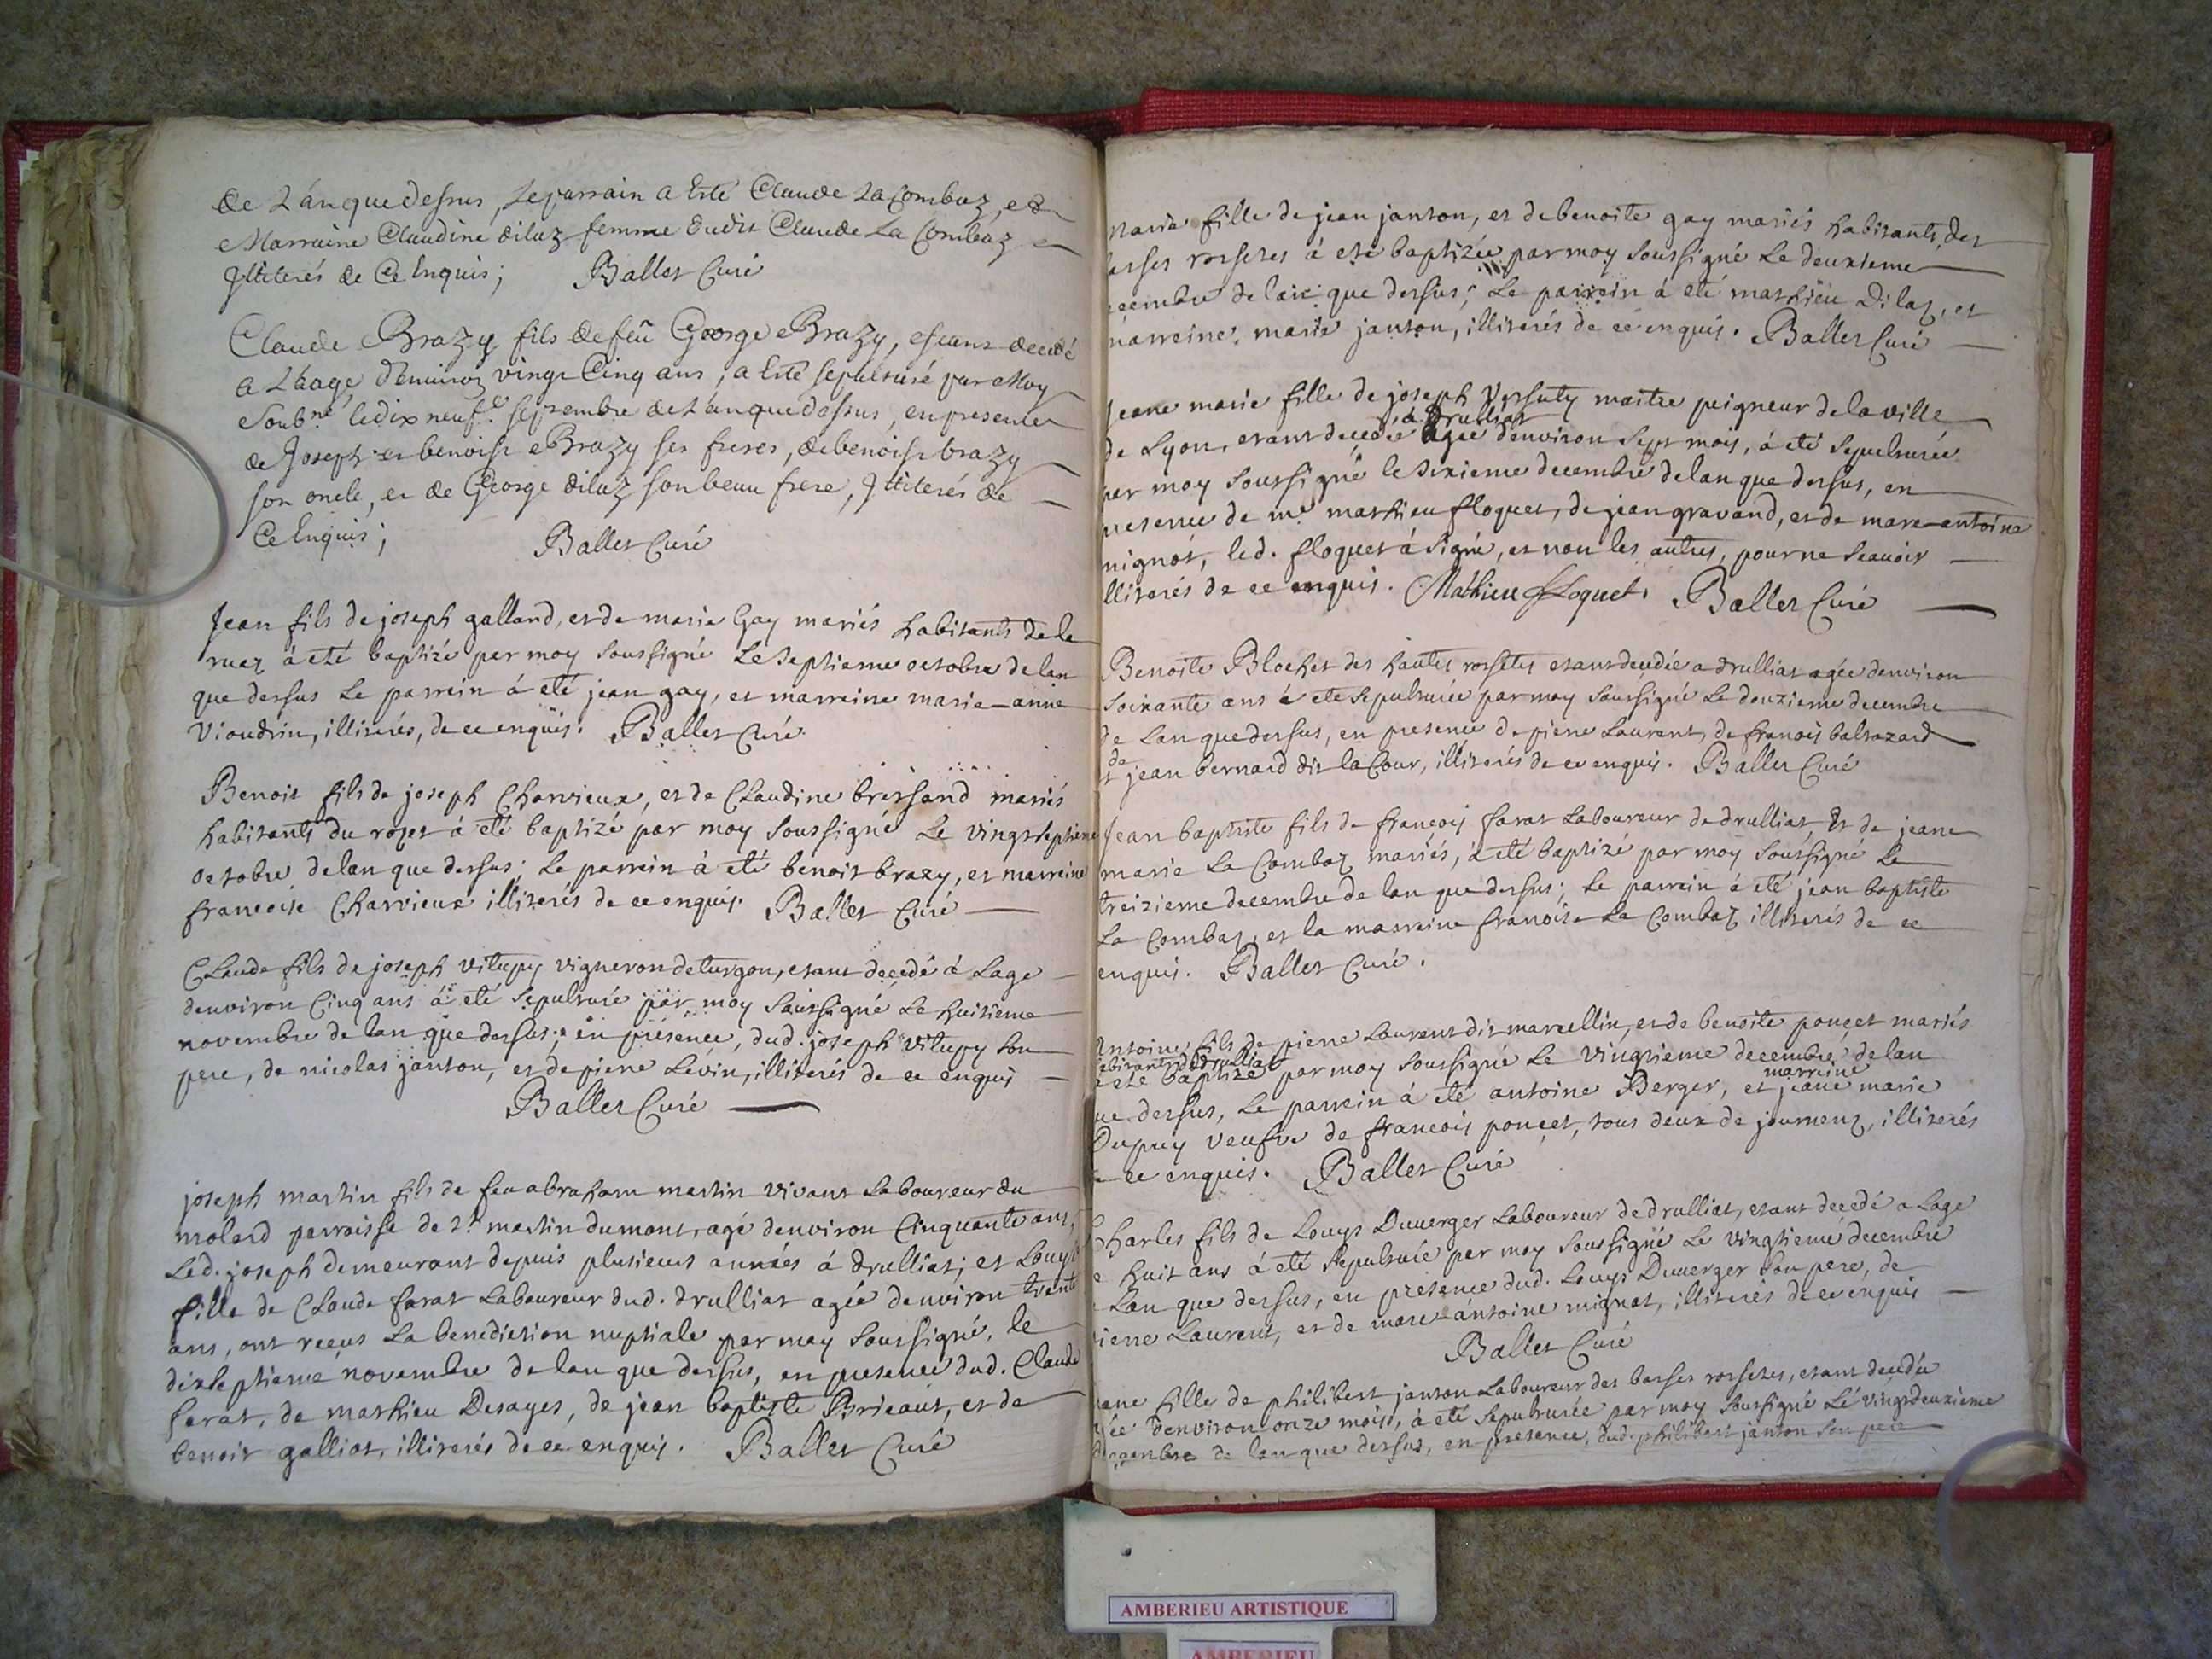 de L'an que dessus, Le parrain a Esté Claude La Combaz, et
Marraine Claudine dilaz femme dudit Claude La Combaz
Illiterés de Ce Enquis; Ballet Curé
Claude Brazy fils de feu George Brazy, estant decedé
a L'aage d'environ vingt Cinq ans, a Esté sepulturé par Moy
Soubné le dix neufe septembre de L'an que dessus, en presence
de Joseph et benoist Brazy ses freres, de benoist brazy
son oncle, et de George dilaz son beau frere, Illiterés de
Ce Enquis; Ballet Curé
Jean fils de joseph galland, et de marie Gay mariés habitants de la
ruaz à eté baptizé par moy soussigné Le septieme octobre de lan
que dessus Le parrein à eté jean gay, et marreine marie-anne
Vioudrin, illiterés, de ce enquis. Ballet Curé
Benoit fils de joseph Charvieux, et de Claudine bressand mariés
habitants du rozet à eté baptizé par moy soussigné Le vingtseptieme
octobre de lan que dessus; Le parrein à eté benoit brazy, et marreine
francoise Charvieux illiterés de ce enquis. Ballet Curé
Claude fils de joseph vitupy vigneron de turgon, etant decedé à Lage
denviron Cinq ans à eté sepulturé par moy soussigné Le huitieme
novembre de lan que dessus; en présence, dud. joseph vitupy son
pere, de nicolas janton, et de piere Lévin, illiterés de ce enquis
Ballet Curé
joseph martin fils de feu abraham martin vivant Laboureur du
molard parroisse de St martin du mont, agé denviron Cinquante ans,
Led. joseph demeurant depuis plusieurs années à drulliat; et Louyse
fille de Claude farat Laboureur dud. drulliat agée denviron trente
ans, ont reçus La benediction nuptiale par moy soussigné, le
dixseptieme novembre de lan que dessus, en presence dud. Claude
farat, de mathieu Desages, de jean baptiste Brieaut, et de
benoit galliot, illiterés de ce enquis. Ballet Curé
Marie fille de jean janton, et de benoite gay mariés habitants des
basses rossetes à eté baptizée par moy soussigné Le deuxieme
decembre de lan que dessus; Le parrein à eté mathieu Dilaz, et
marreine, marie janton, illiterés de ce enquis. Ballet Curé
Jeane marie fille de joseph Versuty maitre peigneur de la ville
à drulliat
de Lyon, etant decedée agée denviron sept mois, à eté sepulturée
par moy soussigné le sixieme decembre de lan que dessus, en
presence de me mathieu floquet, de jean gravand, et de marc-antoine
mignot, led. floquet à signé, et non les autres, pour ne scavoir
illiterés de ce enquis. Mathieu ffloquet. Ballet Curé
Benoite Blochet des hautes rossetes etant decedée a drulliat agée denviron
soixante ans à eté sepulturée par moy soussigné Le douzieme decembre
de Lan que dessus, en presence de piere Laurent, de francois baltazard
de
et jean bernard dit la Cour, illiterés de ce enquis. Ballet Curé
Jean baptiste fils de francois farat Laboureur de drulliat Et de jeane
marie La Combaz mariés, à eté baptizé par moy soussigné Le
treizieme decembre de lan que dessus; Le parrein à eté jean baptiste
La Combaz, et la marreine francoise La Combaz illiterés de ce
enquis. Ballet Curé.
Antoine fils de piere Laurent dit marcellin, et de benoite ponçet mariés
habitants de drulliat
à eté baptizé par moy soussigné Le vingtieme decembre de lan
marreine
que dessus, Le parrein à eté antoine Berger, et jeane marie
Dupuy veufve de francois ponçet, tous deux de journenz, illiterés
de ce enquis. Ballet Curé
Charles fils de Louys Duverger Laboureur de drulliat, etant decedé a Lage
de huit ans à eté sepulturé par moy soussigné Le vingtieme decembre
de Lan que dessus, en presence dud. Louys Duverger son pere, de
piere Laurent, et de marc-antoine mignot, illiterés de ce enquis
Ballet Curé
jeane fille de philibert janton Laboureur des basses rossetes, etant decedée
agée denviron onze mois, à eté sepulturée par moy soussigné Le vingtdeuxieme
decembre de lan que dessus, en presence, dud. philibert janton son pere
AMBERIEU ARTISTIQUE
AMBERIEU